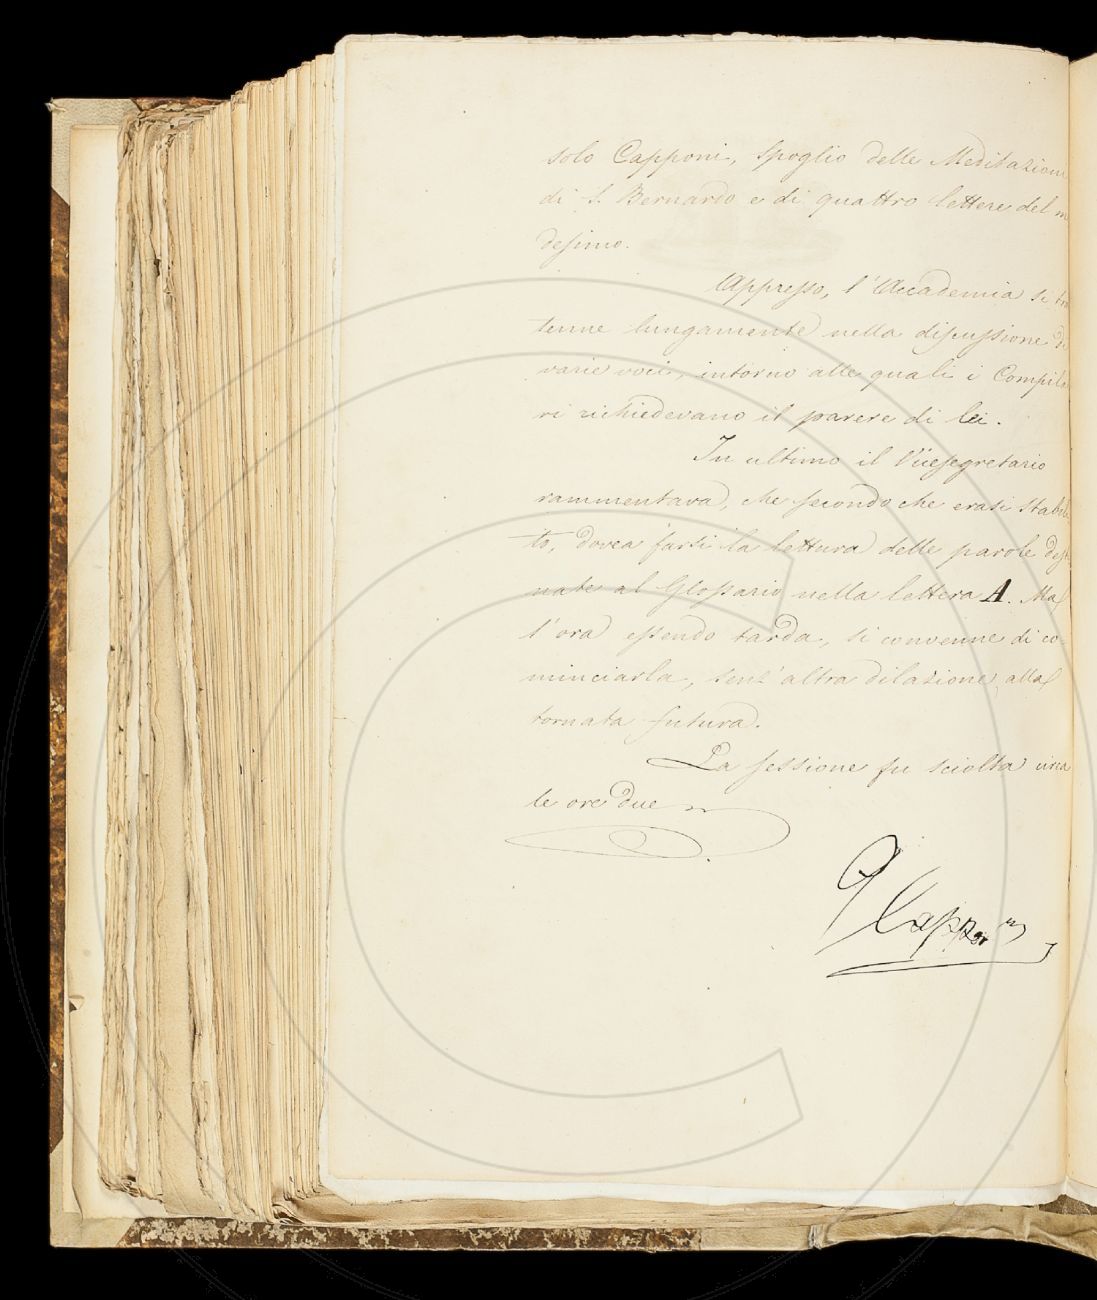 solo Capponi, Spoglio delle Meditazioni
di S. Bernardo e di quattro lettere del m
desimo.
Appresso, l'Accademia si trat
tenne lungamente nella discussione di
varie voci, intorno alle quali i Compila
ri richiedevano il parere di lei.
In ultimo il Vicesegretario
rammentava, che secondo che erasi stabili
to, dovea farsi la lettura delle parole desti
nate al Glossario nella lettera A. Ma
l'ora essendo tarda, si convenne di co=
minciarla, senz'altra dilazione, alla
tornata futura.
La sessione fu sciolta circa
le ore due
G Capponi